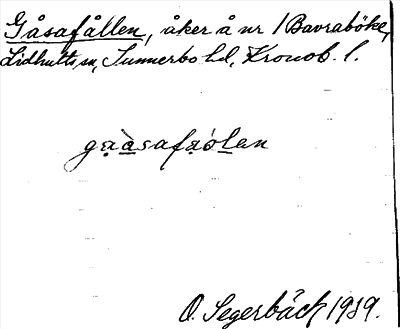 Gåsafållen, åker å nr 1 Bavraböke,
Lidhults sn, Sunnerbo hd, Kronob. l.
gạå̱safạȯl̲an
O. Segerbäck 1919.